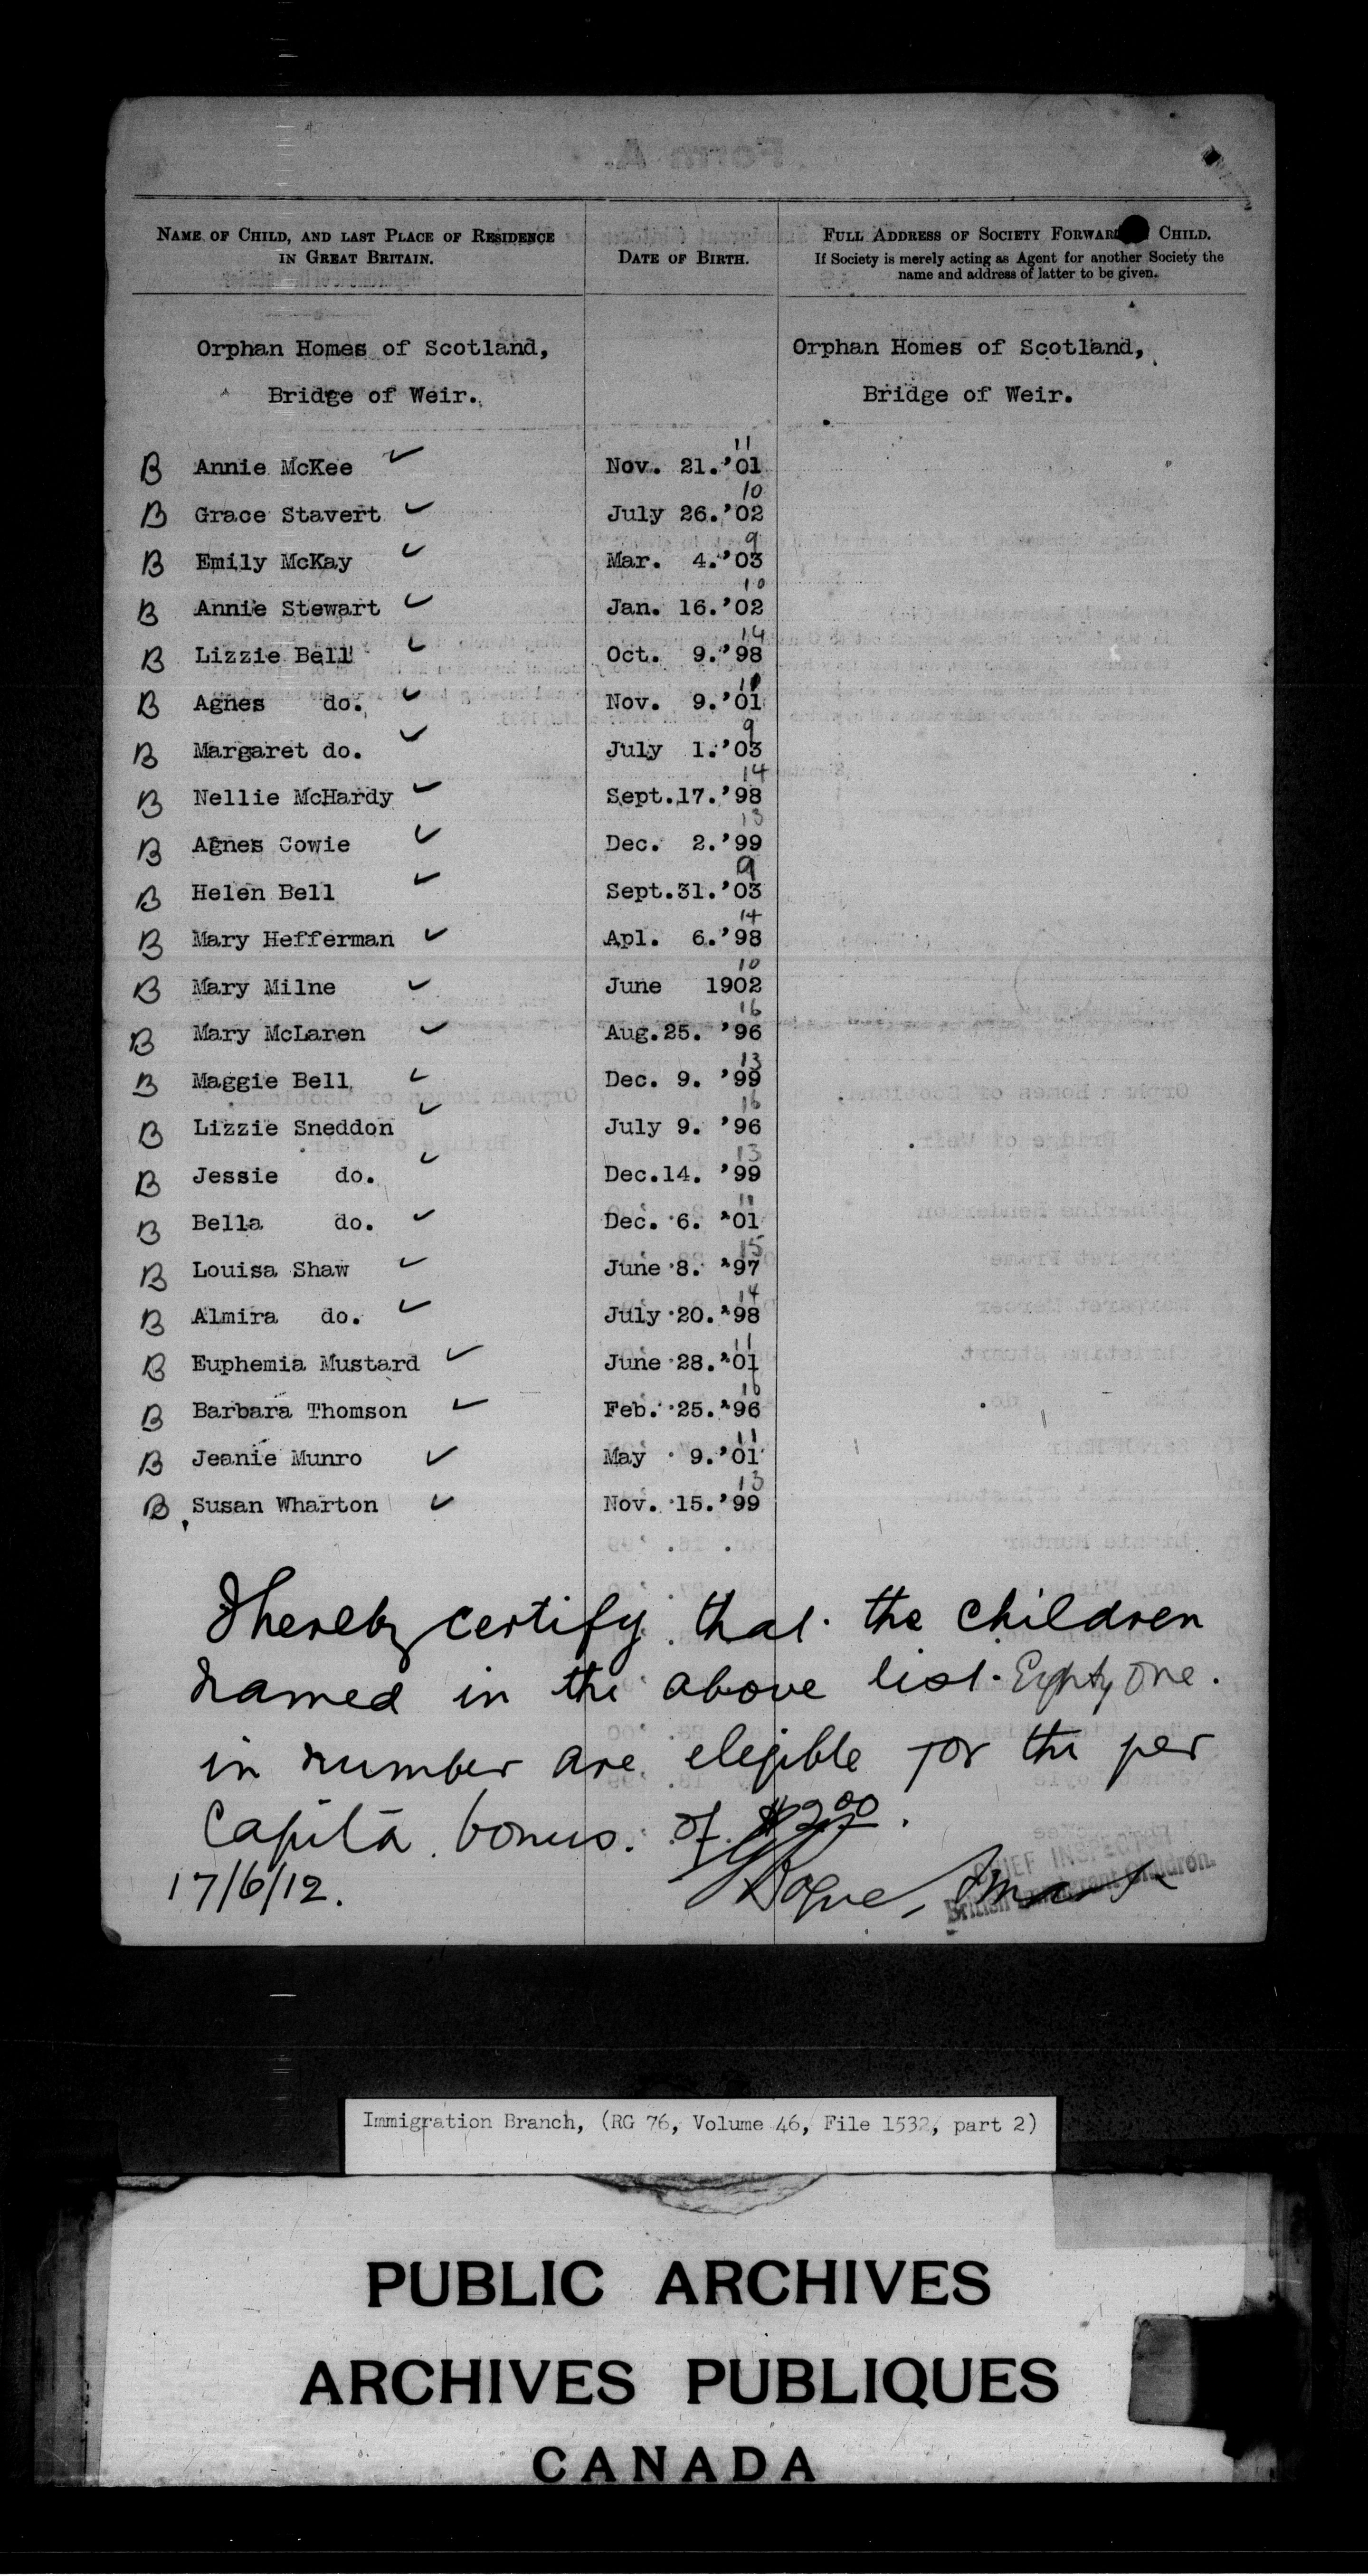 NAME OF CHILD, AND LAST PLACE OF RESIDENCE IN GREAT BRITAIN.
DATE OF BIRTH.
FULL ADDRESS OF SOCIETY FORWAR CHILD.
If Society is merely acting as Agent for another Society the name and address of latter to be given.
Orphan Homes of Scotland, Orphan Homes of Scotland,
Bridge of Weir. Bridge of Weir.
B Annie McKee ✓ Nov. 21.'01 11
B Grace Stavert ✓ July 26.'02 10
B Emily McKay ✓ Mar. 4.'03 9
B Annie Stewart ✓ Jan. 16.'02 10
B Lizzie Bell ✓ Oct. 9.'98 14
B Agnes do. ✓ Nov. 9.'01 11
B Margaret do. ✓ July 1.'03 9
B Nellie McHardy ✓ Sept.17.'98 14
B Agnes Cowie ✓ Dec. 2.'99 13
B Helen Bell ✓ Sept.31.'03 9
B Mary Hefferman ✓ Apl. 6.'98 14
B Mary Milne ✓ June 1902 10
B Mary McLaren ✓ Aug.25. '96 16
B Maggie Bell ✓ Dec. 9. '99 13
B Lizzie Sneddon ✓ July 9. '96 16
B Jessie do. ✓ Dec.14. '99 13
B Bella do. ✓ Dec. 6. '01 11
B Louisa Shaw ✓ June 8. '97 15
B Almira do. ✓ July 20.'98 14
B Euphemia Mustard ✓ June 28.'01 11
B Barbara Thomson ✓ Feb. 25.'96 16
B Jeanie Munro ✓ May 9.'01 11
B Susan Wharton ✓ Nov. 15.'99 13
I hereby certify that the children
named in the above list Eighty One.
in number are eligible for the per
Capita bonus. of $2.00.
CHIEF INSPECTOR
British Immigrant Children.
17/6/12. Bogue Smart
Immigration Branch, (RG 76, Volume 46, File 1532, part 2)
PUBLIC ARCHIVES
ARCHIVES PUBLIQUES
CANADA